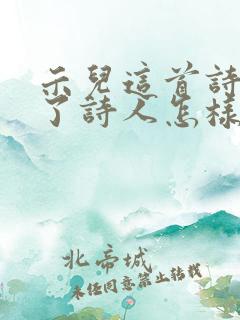 示兒這首詩
了詩人怎樣
北帝城
未经同意禁止转载